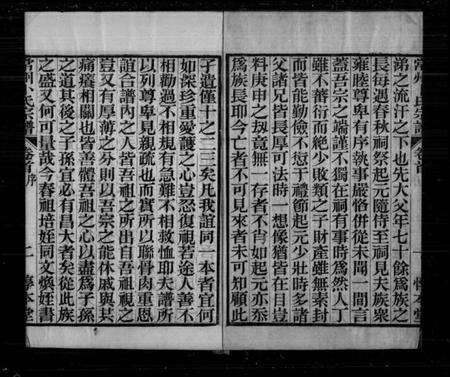 弟之流汗之下也先大父年七十餘爲族之
長每遇春秋祠祭起元隨侍至祠見夫族衆
雍睦尊卑有序執事嚴恪併從未聞一間言
蓋吾宗之端謹不獨在祠有事時爲然人丁
雖不蕃衍而絶少敗類之子財產雖無素封
而皆能勤儉不愆于禮節起元少壯時多諸
父諸兄皆長厚可法時一想像猶皆在目豈
料庚申之刼竟無一存者不肖如起元亦忝
爲族長耶今亡者不可見來者未可知顧此
孑遺僅十之二三矣凡我誼同一本者宜何
如深珍重愛護之心豈忍復視若途人善不
相勸過不相規有急難不相救恤耶夫譜所
以列尊卑見親疏也而實所以聯骨肉重恩
誼合譜內之人皆吾祖之所出自吾祖視之
豈又有厚薄之分則以吾宗之能休戚與共
痛癢相關也皆善體吾祖之心以盡爲子孫
之道其後之子孫宜必有昌大者矣從此族
之盛又何可量哉今春祖培姪同文煥姪書
常州 氏宗譜 二 惇本堂